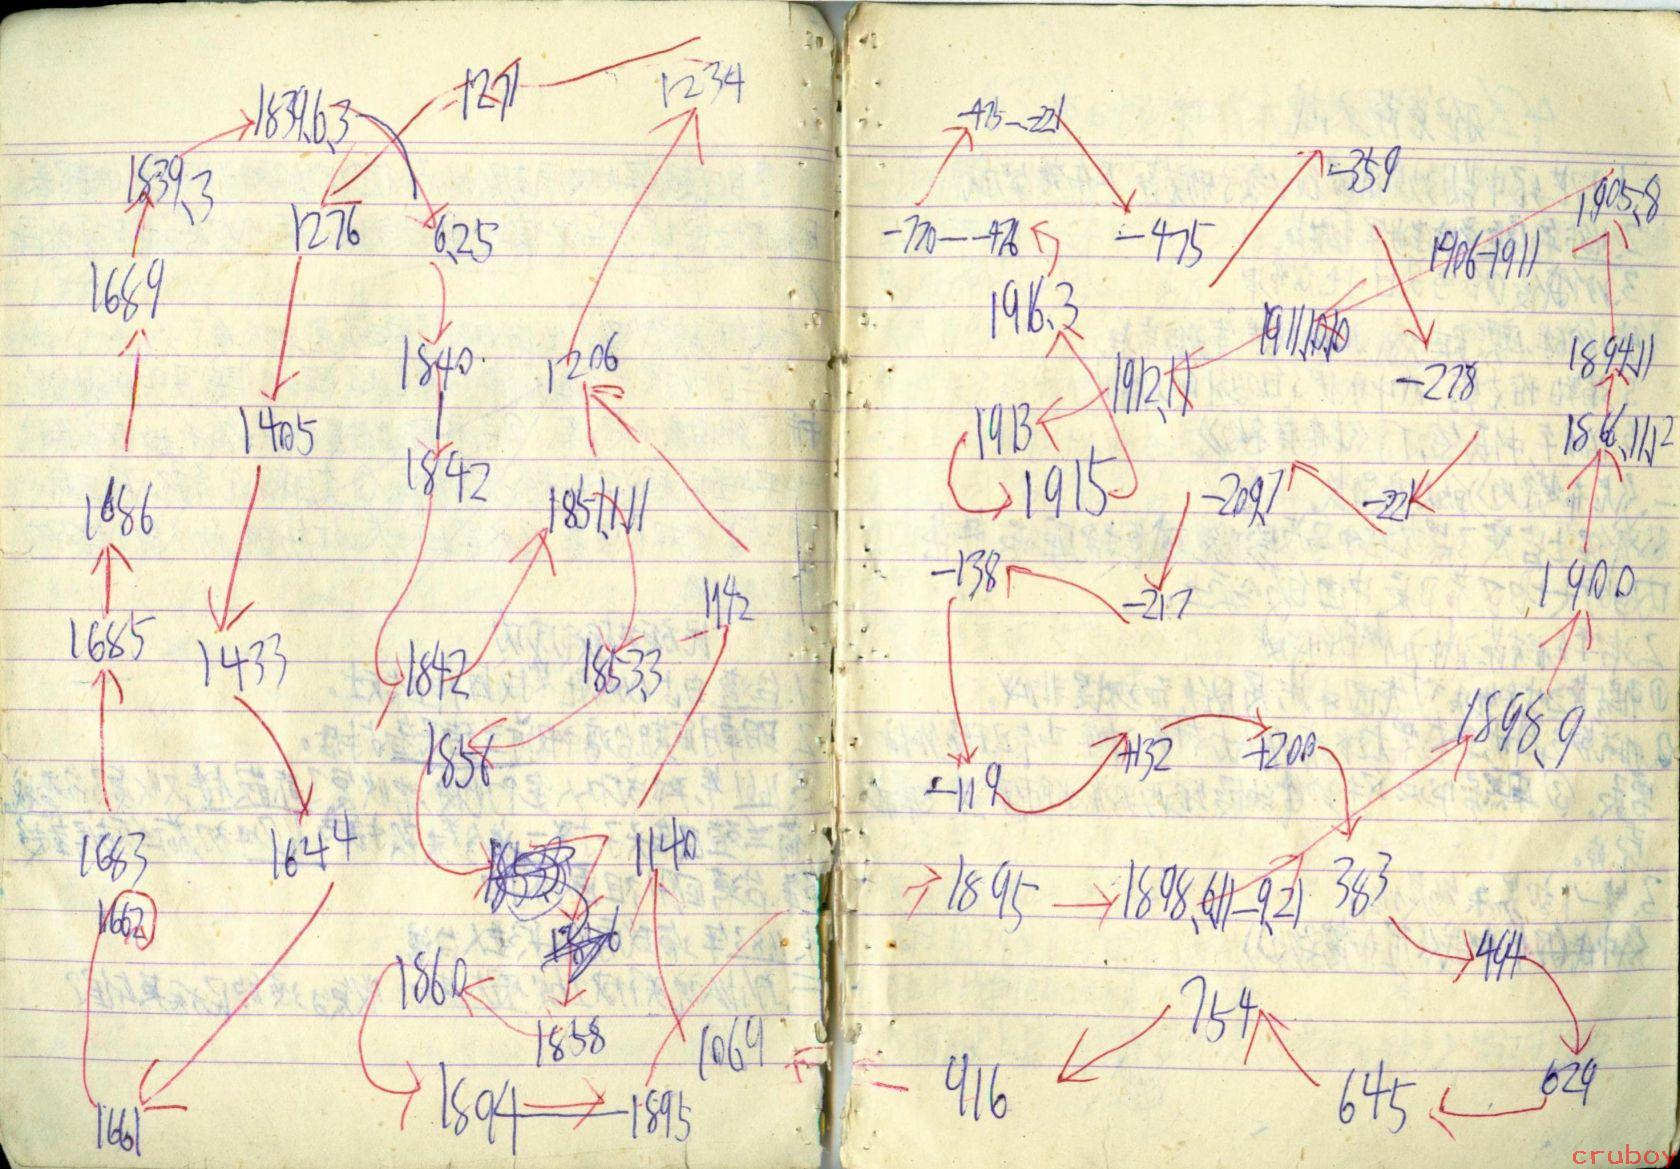 1839,6,3
1271
1234
1839,3
1276
6,25
1689
1840
1206
1405
1842
1686
1851,1,11
1142
1685
1433
1842
1853,3
1856
1683
1644
1140
1662
1860
1858
1069
1661
1894
1895
-475--221
-359
1905,8
-770--476
-475
1906-1911
1916,3
1911,10,10
1894,11
1912,1,1
-228
1913
1866,11,12
1915
-209,7
-221
-138
-217
1900
1898,9
+132
+200
-119
1895
1898,6,11-9,21
383
494
754
916
645
629
cruboy